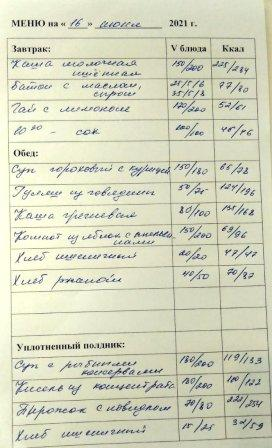 МЕНЮ на « 16 » июня 2021 г.
Завтрак: V блюда Ккал
Каша молочная пшённая 150/200 225/284
Батон с маслом, сыром 25/5/6 35/5/8 77/80
Чай с лимоном 170/200 52/61
10 20 - сок 100/100 45/46
Обед:
Суп гороховый с курицей 150/180 66/78
Гуляш из говядины 50/75 124/196
Каша гречневая 80/100 /168
Компот из яблок с 150/200 69/96
Хлеб пшеничный 20/20 47/47
Хлеб ржаной 40/50 70/87
Уплотненный полдник:
Суп с рыбными консервами 180/200 119/133
Кисель из концентрата 180/200 /122
Пирожок с повидлом 70/80 222/254
Хлеб пшеничный 15/25 32/59